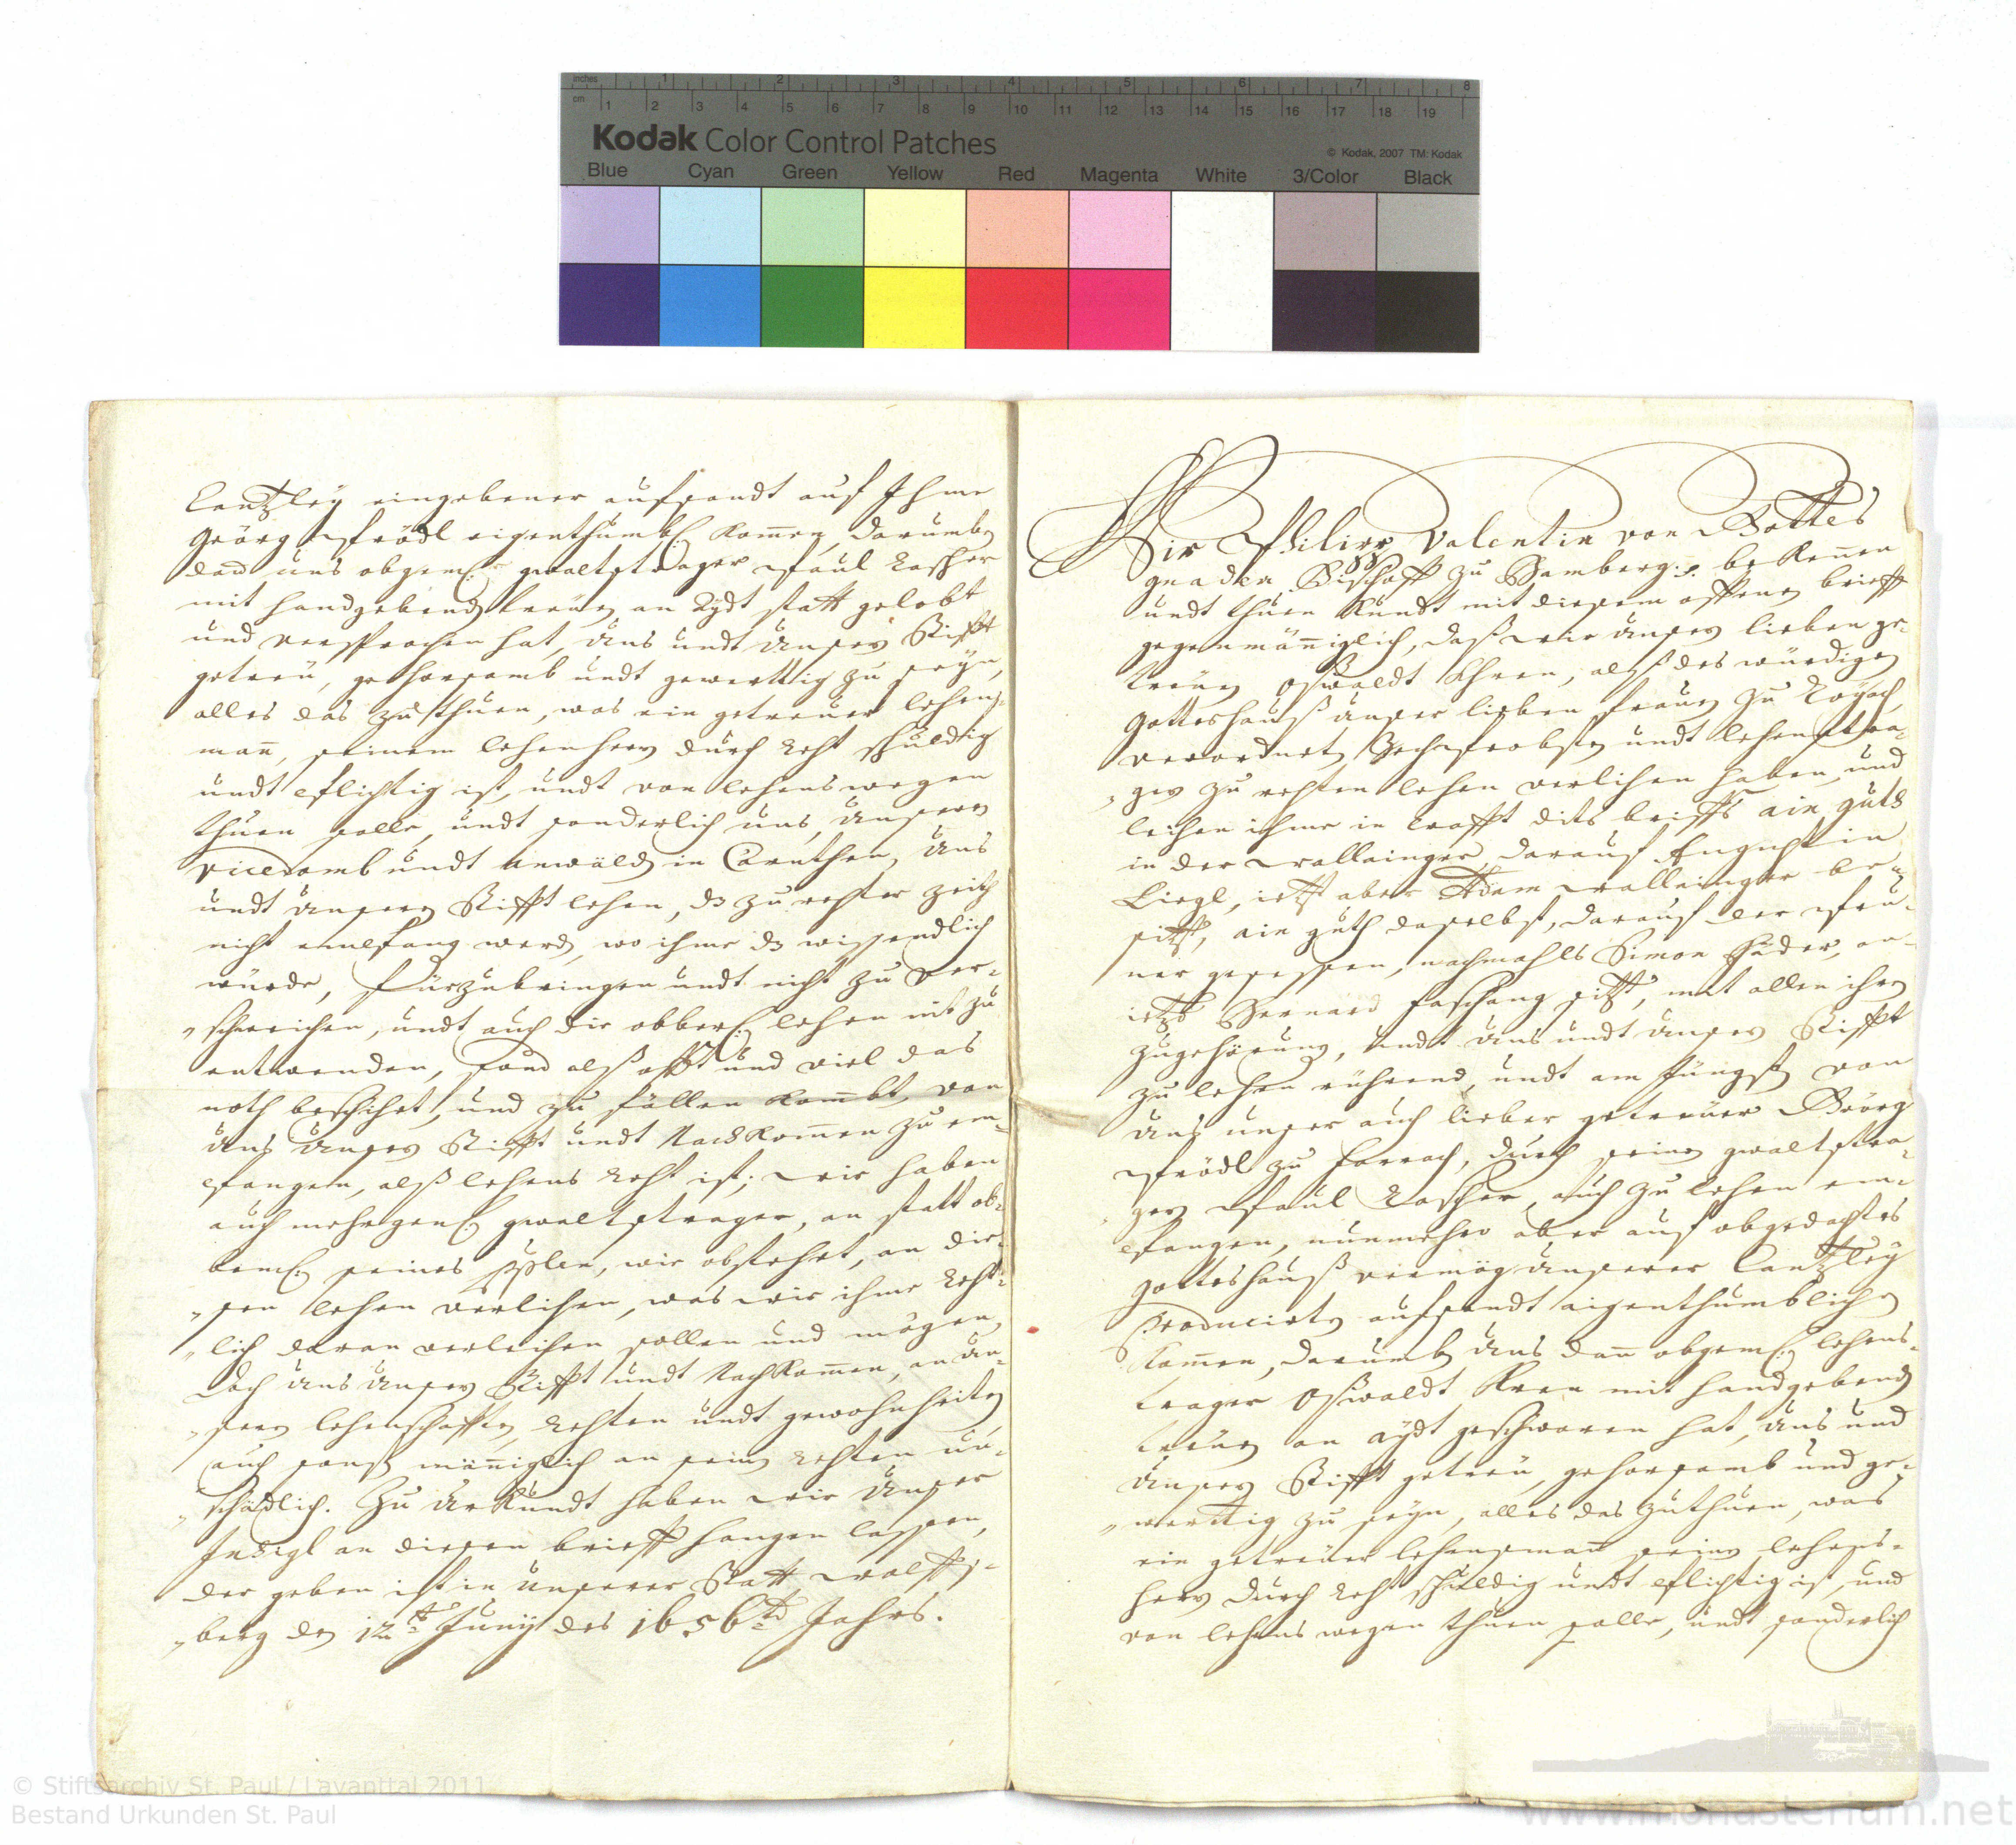 inches 1 2 3 4 5 6 7 8
cm 1 2 3 4 5 6 7 8 9 10 11 12 13 14 15 16 17 18 19
Kodak Color Control Patches
© Kodak, 2007 TM: Kodak
Blue Cyan Green Yellow Red Magenta White 3/Color Black
Cantzleÿ eingebener aufsandt auf Ihme
Geörg Prödl eigenthumbl: kom̅en, darumben
dan̅ uns obgem: gwaltstrager Paul Lascher
mit handgebenden treuen an Aÿdt statt gelobt
und versprochen hat, uns undt unsern Stifft
getreu, gehorsamb undt gewerttig zu seÿn,
alles das zu thuen, was ein getreuer lehens-
man̅, seinem lehenherrn durch Recht schuldig
undt pflichtig ist, undt von lehens wegen
thuen solle, undt sonderlich uns, unsern
Vicedomb undt Anwälden in Cärnthen, uns
undt unsern Stifft lehen, dz zu rechter zeith
nicht empfang werden, wo ihme dz wissendlich
würde, fürzubringen undt nicht zu ver-
schweichen, undt auch die obber: lehen nit zu
entwenden, sond alß offt und viel das
noth beschihet, und zu fällen kombt, von
uns unsern Stifft undt Nachkom̅en zu em-
pfangen, alß lehens Recht ist; wir haben
auch mehrgen: gwaltstrager, an statt ob-
bem: seines, wie obstehet, an die-
sen lehen verlihen, was wir ihme Recht-
lich daran verleihen sollen und mögen,
doch uns unsern Stifft undt Nachkom̅en, an un-
sern lehenschafften, Rechten undt gewohnheiten
auch sonst män̅iglich an seinen Rechten un-
schädlich. Zu Urkundt haben wir unser
Insigl an diesen brieff hangen lassen,
der geben ist in unserer Statt Wolffs-
berg den 12ten Junÿ des 1656ten Jahrs.
Wir Philipp Valentin von Gottes
gnaden Bischoff zu Bamberg: beken̅en
undt thuen kundt mit diesem offenen brieff
gegenmän̅iglich, daß wir unsern lieben ge-
treuen Oßwaldt Khren, alß des würdigen
Gotteshauß unser lieben frauen zu Loÿach
verordneten Zechprobsten undt lehenstra-
ger zu rechten lehen verlihen haben, und
leihen ihme in crafft dits brieffs ain gueth
in der Wallaingen, darauf Augustin
Liegl, ietzt aber Adam Wallainger be-
sitzt, ain guth daselbst, darauf der Pru-
ner gesessen, nachmahls Simon Häder, an-
ietzt Bernard Faschang sitzt, mit allen ihren
zugehörung, undt uns undt unsern Stifft
zu lehen rührend, undt am jüngsten von
uns unser auch lieber getreuer Geörg
Prödl zu Farrach, durch seinen gwaltstra-
ger Paul Lascher, auch zu lehen em-
pfangen, nunmehro aber auf obgedachtes
Gotteshauß vermög unserer Cantzleÿ
producirten aufsandt aigenthumblichen
kom̅en, darumben uns dan̅ obgem: lehens-
trager Oßwaldt Kren mit handgebenden
treuen an aÿdt geschworen hat, uns und
unsern Stifft getreu, gehorsamb und ge-
werttig zu seÿn, alles das zuthuen, was
ein getreuer lehensman̅ seinen lehens-
herrn durch Recht schuldig undt pflichtig ist, und
von lehens wegen thuen solle, undt sonderlich
© Stiftsarchiv St. Paul / Lavanttal 2011
Bestand Urkunden St. Paul
www.monasterium.net